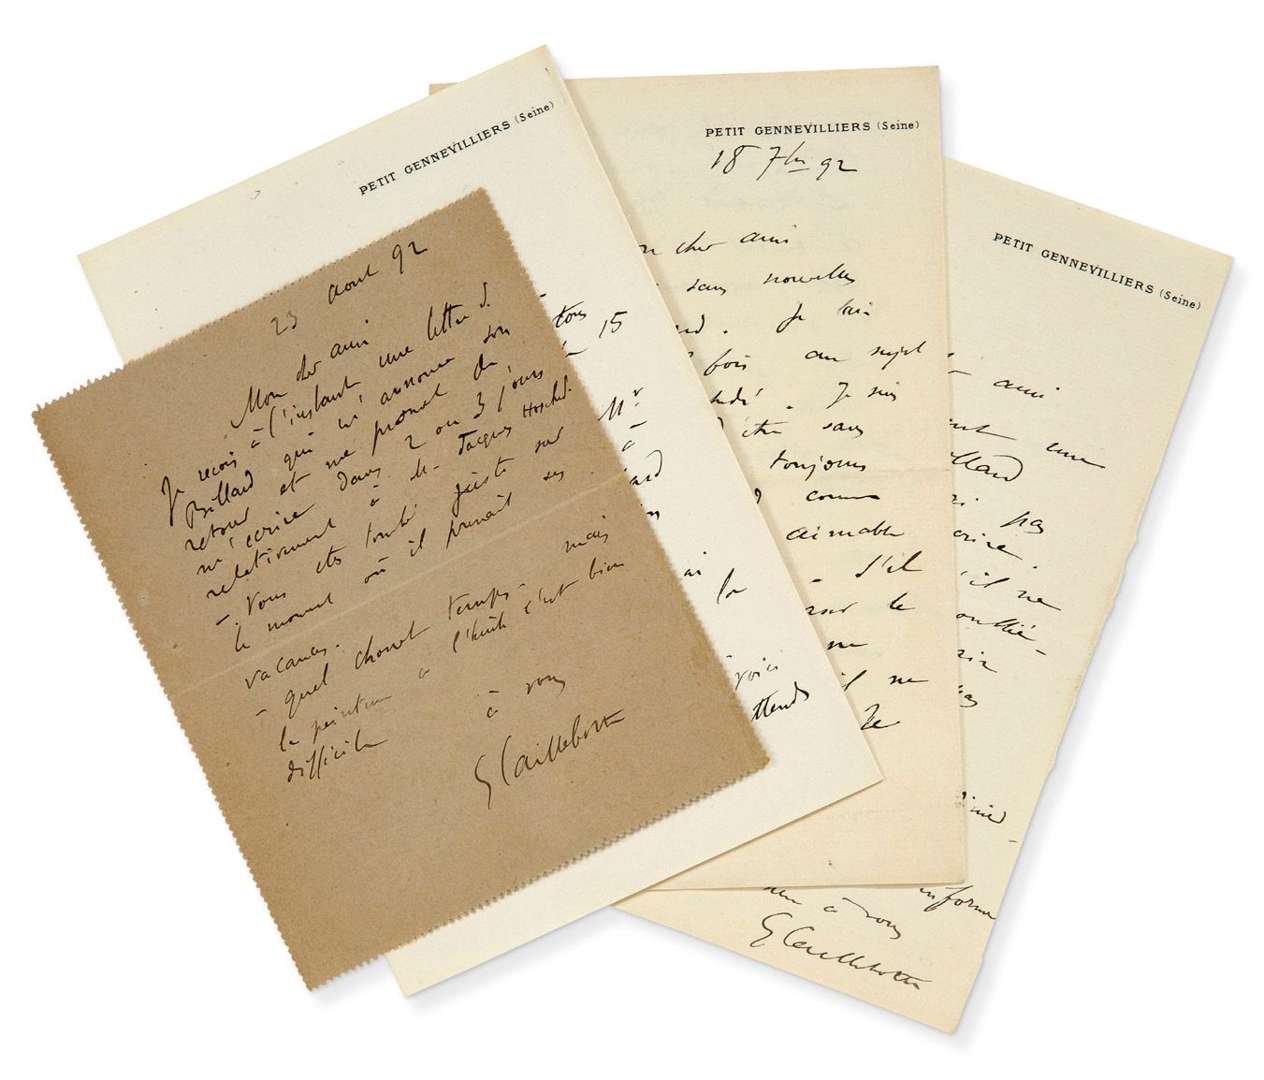 23 aout 92
Mon cher ami
Je reçois à l'instant une lettre de
Billard qui m'annonce son
retour et me promet de
m'écrire dans 2 ou 3 jours
relativement à M. Jacques Hoschedé.
- Vous êtes tombé juste sur
le moment où il prenait ses
vacances.
- quel chouet temps - mais
la peinture à l'huile c'est bien
difficile
à vous
G Caillebotte
PETIT GENNEVILLIERS (Seine)
tous
15
Mr
à
la
voici
attends
PETIT GENNEVILLIERS (Seine)
18 7bre 92
cher ami
sans nouvelles
Je
fois au sujet
Je suis
être sans
toujours
comme
aimable
- S'il
sur le
me
il ne
de
PETIT GENNEVILLIERS (Seine)
ami
une
pas
écrire
s'il ne
oublié -
pas
informe
à vous
G Caillebotte